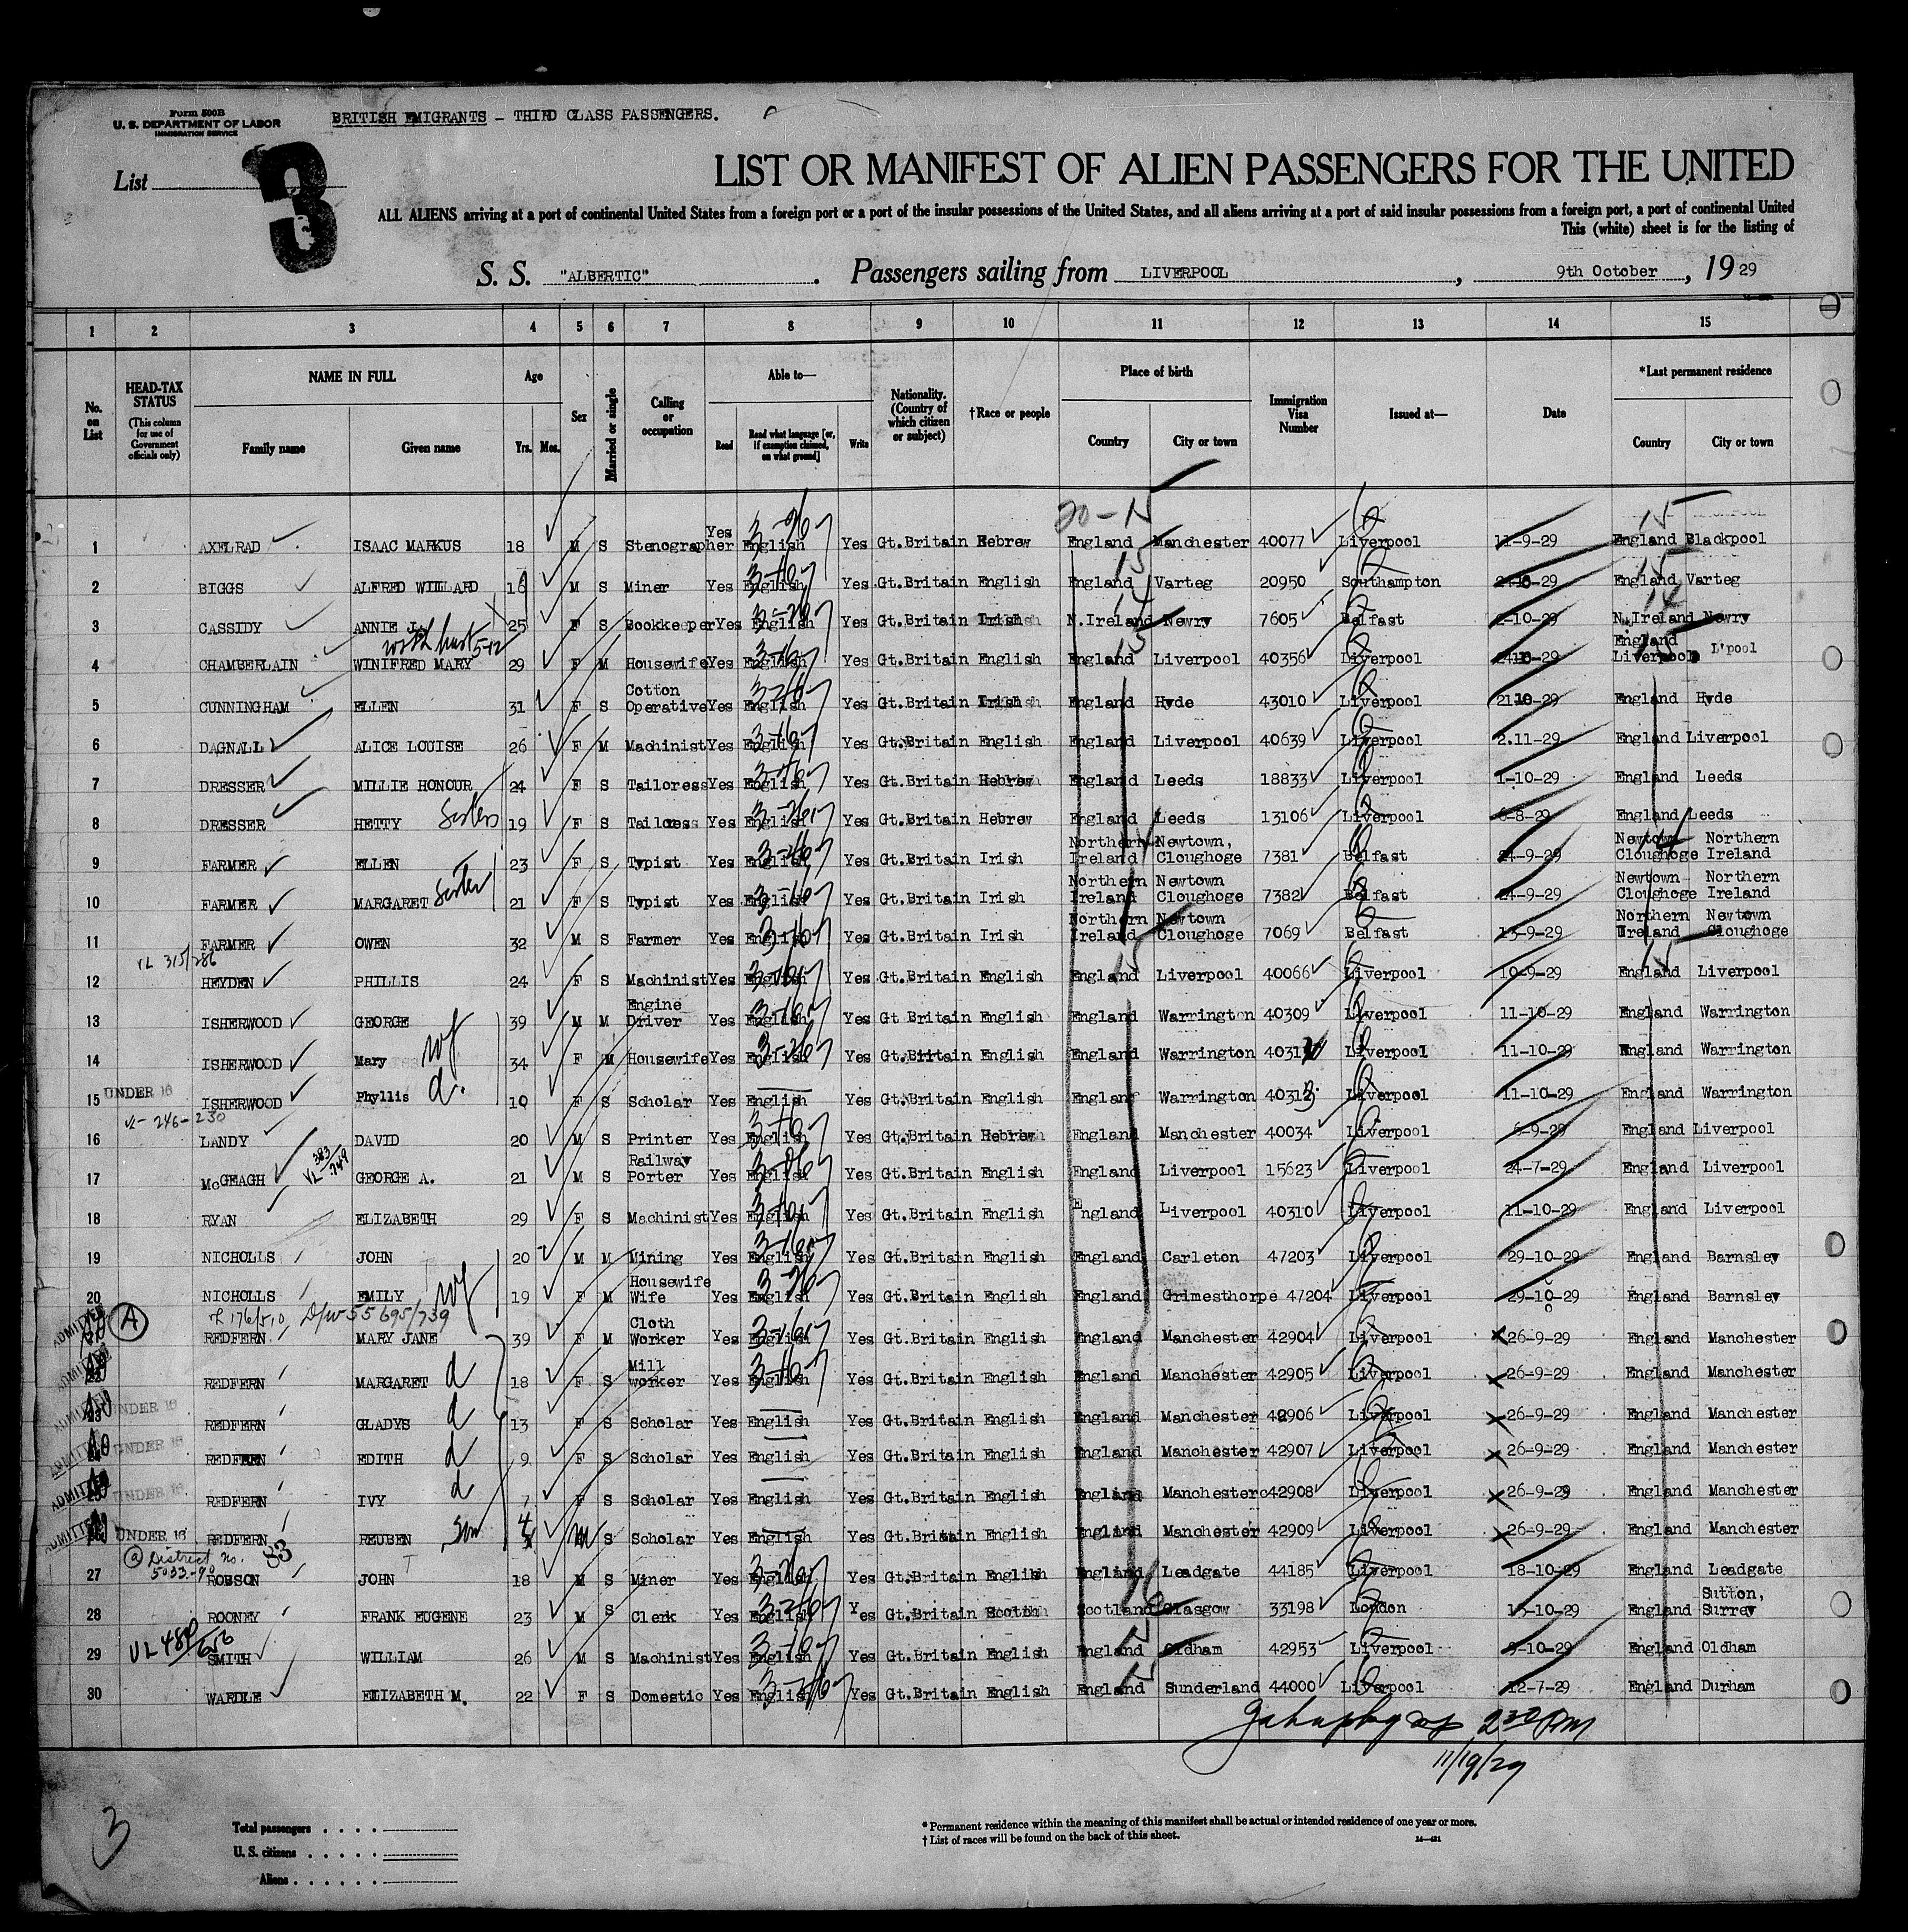 Form 500B
U. S. DEPARTMENT OF LABOR
IMMIGRATION SERVICE
BRITISH EMIGRANTS - THIRD CLASS PASSENGERS.
List 3
LIST OR MANIFEST OF ALIEN PASSENGERS FOR THE UNITED
ALL ALIENS arriving at a port of continental United States from a foreign port or a port of the insular possessions of the United States, and all aliens arriving at a port of said insular possessions from a foreign port, a port of continental United
This (white) sheet is for the listing of
S. S. "ALBERTIC". Passengers sailing from LIVERPOOL, 9th October, 19 29
1 2 3 4 5 6 7 8 9 10 11 12 13 14 15
No. on List
HEAD-TAX STATUS (This column for use of Government officials only)
NAME IN FULL Family name Given name
Age Yrs. Mos.
Sex
Married or single
Calling or occupation
Able to— Read Read what language [or, if exemption claimed, on what ground] Write
Nationality. (Country of which citizen or subject)
†Race or people
Place of birth Country City or town
Immigration Visa Number
Issued at—
Date
*Last permanent residence Country City or town
20-15 15
1 AXELRAD ISAAC MARKUS 18 M S Stenographer Yes English Yes Gt.Britain Hebrew England Manchester 40077 Liverpool 11-9-29 England Blackpool
2 BIGGS ALFRED WILLARD 16 M S Miner Yes English Yes Gt.Britain English England Varteg 20950 Southampton England Varteg
3 CASSIDY ANNIE J. 25 F S Bookkeeper Yes English Yes Gt.Britain Irish N.Ireland Newry 7605 Belfast 2-10-29 N.Ireland Newry
4 CHAMBERLAIN WINIFRED MARY 29 F M Housewife Yes English Yes Gt.Britain English England Liverpool 40356 Liverpool 2410-29 England Liverpool L'pool
5 CUNNINGHAM ELLEN 31 F S Cotton Operative Yes English Yes Gt.Britain Irish England Hyde 43010 Liverpool 2110-29 England Hyde
6 DAGNALL ALICE LOUISE 26 F M Machinist Yes English Yes Gt.Britain English England Liverpool 40639 Liverpool 2.11-29 England Liverpool
7 DRESSER MILLIE HONOUR 24 F S Tailoress Yes English Yes Gt.Britain Hebrew England Leeds 18833 Liverpool 1-10-29 England Leeds
8 DRESSER HETTY Sisters 19 F S Tailoress Yes English Yes Gt.Britain Hebrew England Leeds 13106 Liverpool 6-8-29 England Leeds
9 FARMER ELLEN 23 F S Typist Yes English Yes Gt.Britain Irish Northern Ireland Newtown, Cloughoge 7381 Belfast 24-9-29 Newtown Cloughoge Northern Ireland
10 FARMER MARGARET Sister 21 F S Typist Yes English Yes Gt.Britain Irish Northern Ireland Newtown Cloughoge 7382 Belfast 24-9-29 Newtown Cloughoge Northern Ireland
11 FARMER OWEN 32 M S Farmer Yes English Yes Gt.Britain Irish Northern Ireland Newtown Cloughoge 7069 Belfast 13-9-29 Northern Ireland Newtown Cloughoge
VL 315/286
12 HEYDEN PHILLIS 24 F S Machinist Yes English Yes Gt.Britain English England Liverpool 40066 Liverpool 10-9-29 England Liverpool
13 ISHERWOOD GEORGE 39 M M Engine Driver Yes English Yes Gt Britain English England Warrington 40309 Liverpool 11-10-29 England Warrington
14 ISHERWOOD Mary wf 34 F M Housewife Yes English Yes Gt.Britain English England Warrington Liverpool 11-10-29 England Warrington
15 UNDER 16 ISHERWOOD Phyllis d. 10 F S Scholar Yes English Yes Gt.Britain English England Warrington Liverpool 11-10-29 England Warrington
246-230
16 LANDY DAVID 20 M S Printer Yes English Yes Gt.Britain Hebrew England Manchester 40034 Liverpool 6-9-29 England Liverpool
17 McGEAGH VL 383/749 GEORGE A. 21 M S Railway Porter Yes English Yes Gt.Britain English England Liverpool 15623 Liverpool 24-7-29 England Liverpool
18 RYAN ELIZABETH 29 F S Machinist Yes English Yes Gt.Britain English England Liverpool 40310 Liverpool 11-10-29 England Liverpool
19 NICHOLLS JOHN 20 M M Mining Yes English Yes Gt.Britain English England Carleton 47203 Liverpool 29-10-29 England Barnsley
20 NICHOLLS EMILY wf 19 F M Housewife Wife Yes English Yes Gt.Britain English England Grimesthorpe 47204 Liverpool 29-10-29 England Barnsley
176/510, 55695/739
ADMITTED A REDFERN MARY JANE 39 F M Cloth Worker Yes English Yes Gt.Britain English England Manchester 42904 Liverpool 26-9-29 England Manchester
ADMITTED REDFERN MARGARET d 18 F S Mill worker Yes English Yes Gt.Britain English England Manchester 42905 Liverpool 26-9-29 England Manchester
ADMITTED 23 UNDER 16 REDFERN GLADYS d 13 F S Scholar Yes English Yes Gt.Britain English England Manchester 42906 Liverpool 26-9-29 England Manchester
ADMITTED UNDER 16 REDFERN EDITH d 9 F S Scholar Yes English Yes Gt.Britain English England Manchester 42907 Liverpool 26-9-29 England Manchester
ADMITTED UNDER 16 REDFERN IVY d 7 F S Scholar Yes English Yes Gt.Britain English England Manchester 42908 Liverpool 26-9-29 England Manchester
ADMITTED UNDER 16 REDFERN REUBEN son 4 M S Scholar Yes English Yes Gt.Britain English England Manchester 42909 Liverpool 26-9-29 England Manchester
District No. 83
5033-90
27 ROBSON JOHN 18 M S Miner Yes English Yes Gt.Britain English England Leadgate 44185 Liverpool 18-10-29 England Leadgate
28 ROONEY FRANK EUGENE 23 M S Clerk Yes English Yes Gt.Britain Scotch Scotland Glasgow 33198 London 15-10-29 England Sutton, Surrey
29 SMITH WILLIAM 26 M S Machinist Yes English Yes Gt.Britain English England Oldham 42953 Liverpool 9-10-29 England Oldham
30 WARDLE ELIZABETH M. 22 F S Domestic Yes English Yes Gt.Britain English England Sunderland 44000 Liverpool 12-7-29 England Durham
2 30 PM
11/19/29
3
Total passengers . . . .
U. S. citizens . . . . .
Aliens . . . . . .
* Permanent residence within the meaning of this manifest shall be actual or intended residence of one year or more.
† List of races will be found on the back of this sheet.
14—421